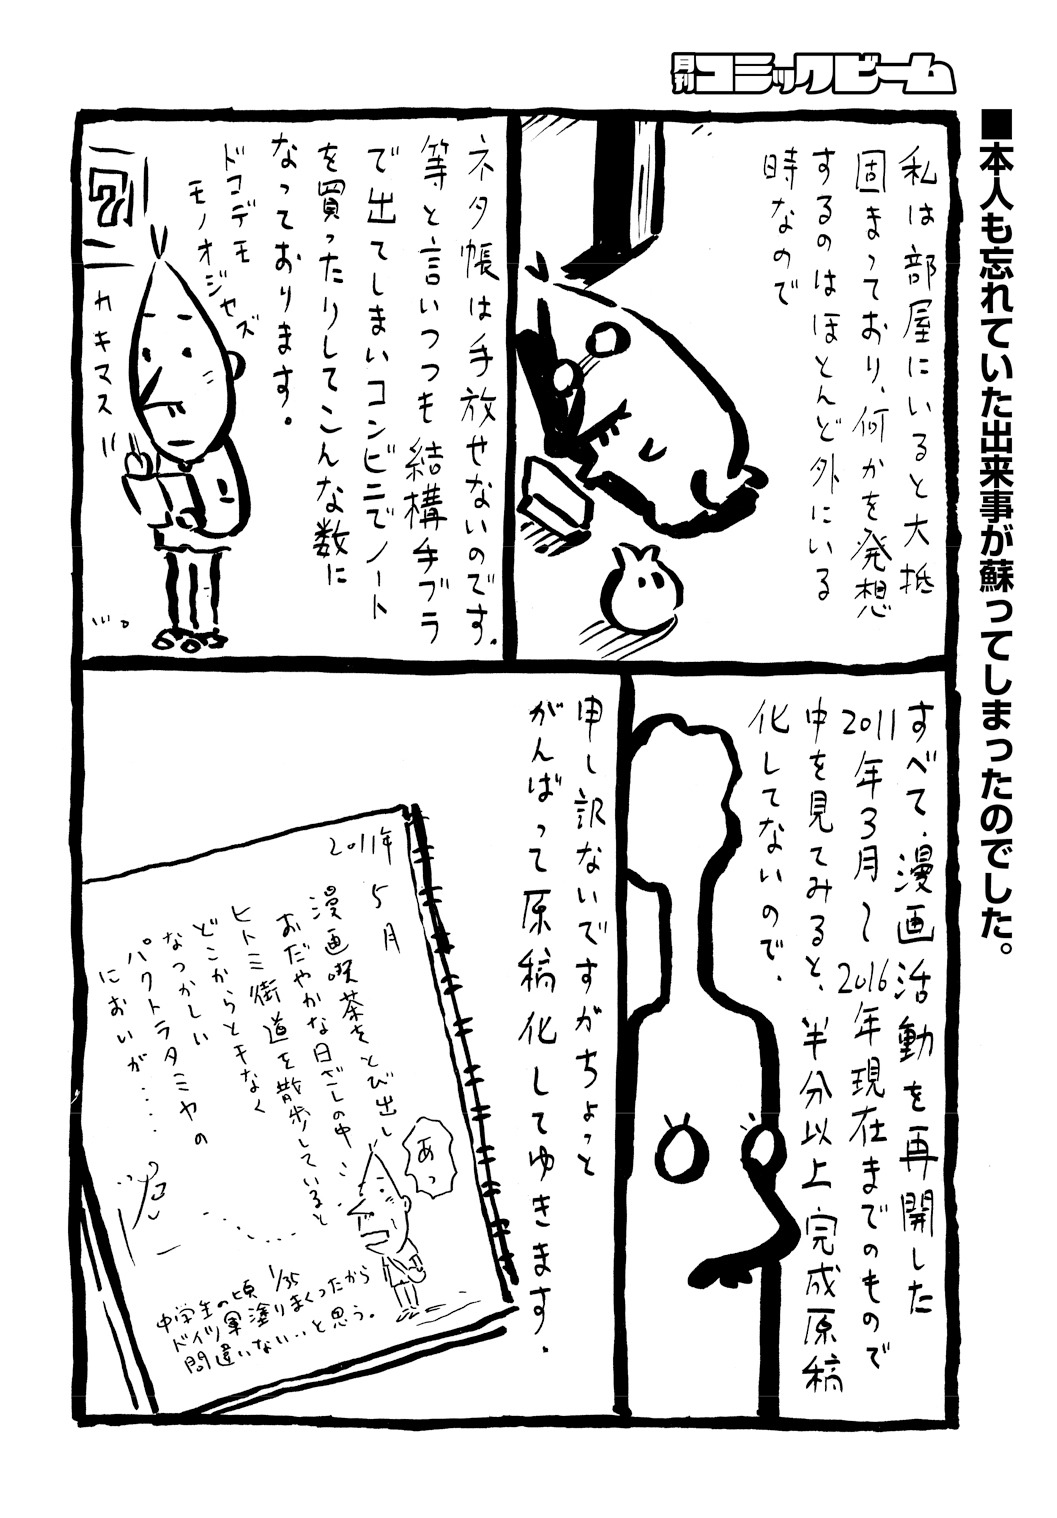 月刊コミックビーム
■本人も忘れていた出来事が蘇ってしまったのでした。
私は部屋にいると大抵
固まっており、何かを発想
するのはほとんど外にいる
時なので
ネタ帳は手放せないのです。
等と言いつつも結構手ブラ
で出てしまいコンビニでノート
を買ったりしてこんな数に
なっております。
ドコデモ
モノオジセズ
カキマス
すべて、漫画活動を再開した
2011年3月〜2016年現在までのもので
中を見てみると、半分以上完成原稿
化してないので、
申し訳ないですがちょっと
がんばって原稿化してゆきます。
2011年
5月
漫画喫茶をとび出し
おだやかな日ざしの中
ヒトミ街道を散歩していると
どこからとモなく
なつかしい
パクトラタミヤの
においが・・・・
あっ
中学生の頃1/35
ドイツ軍塗りまくったから
間違いない・・と思う。